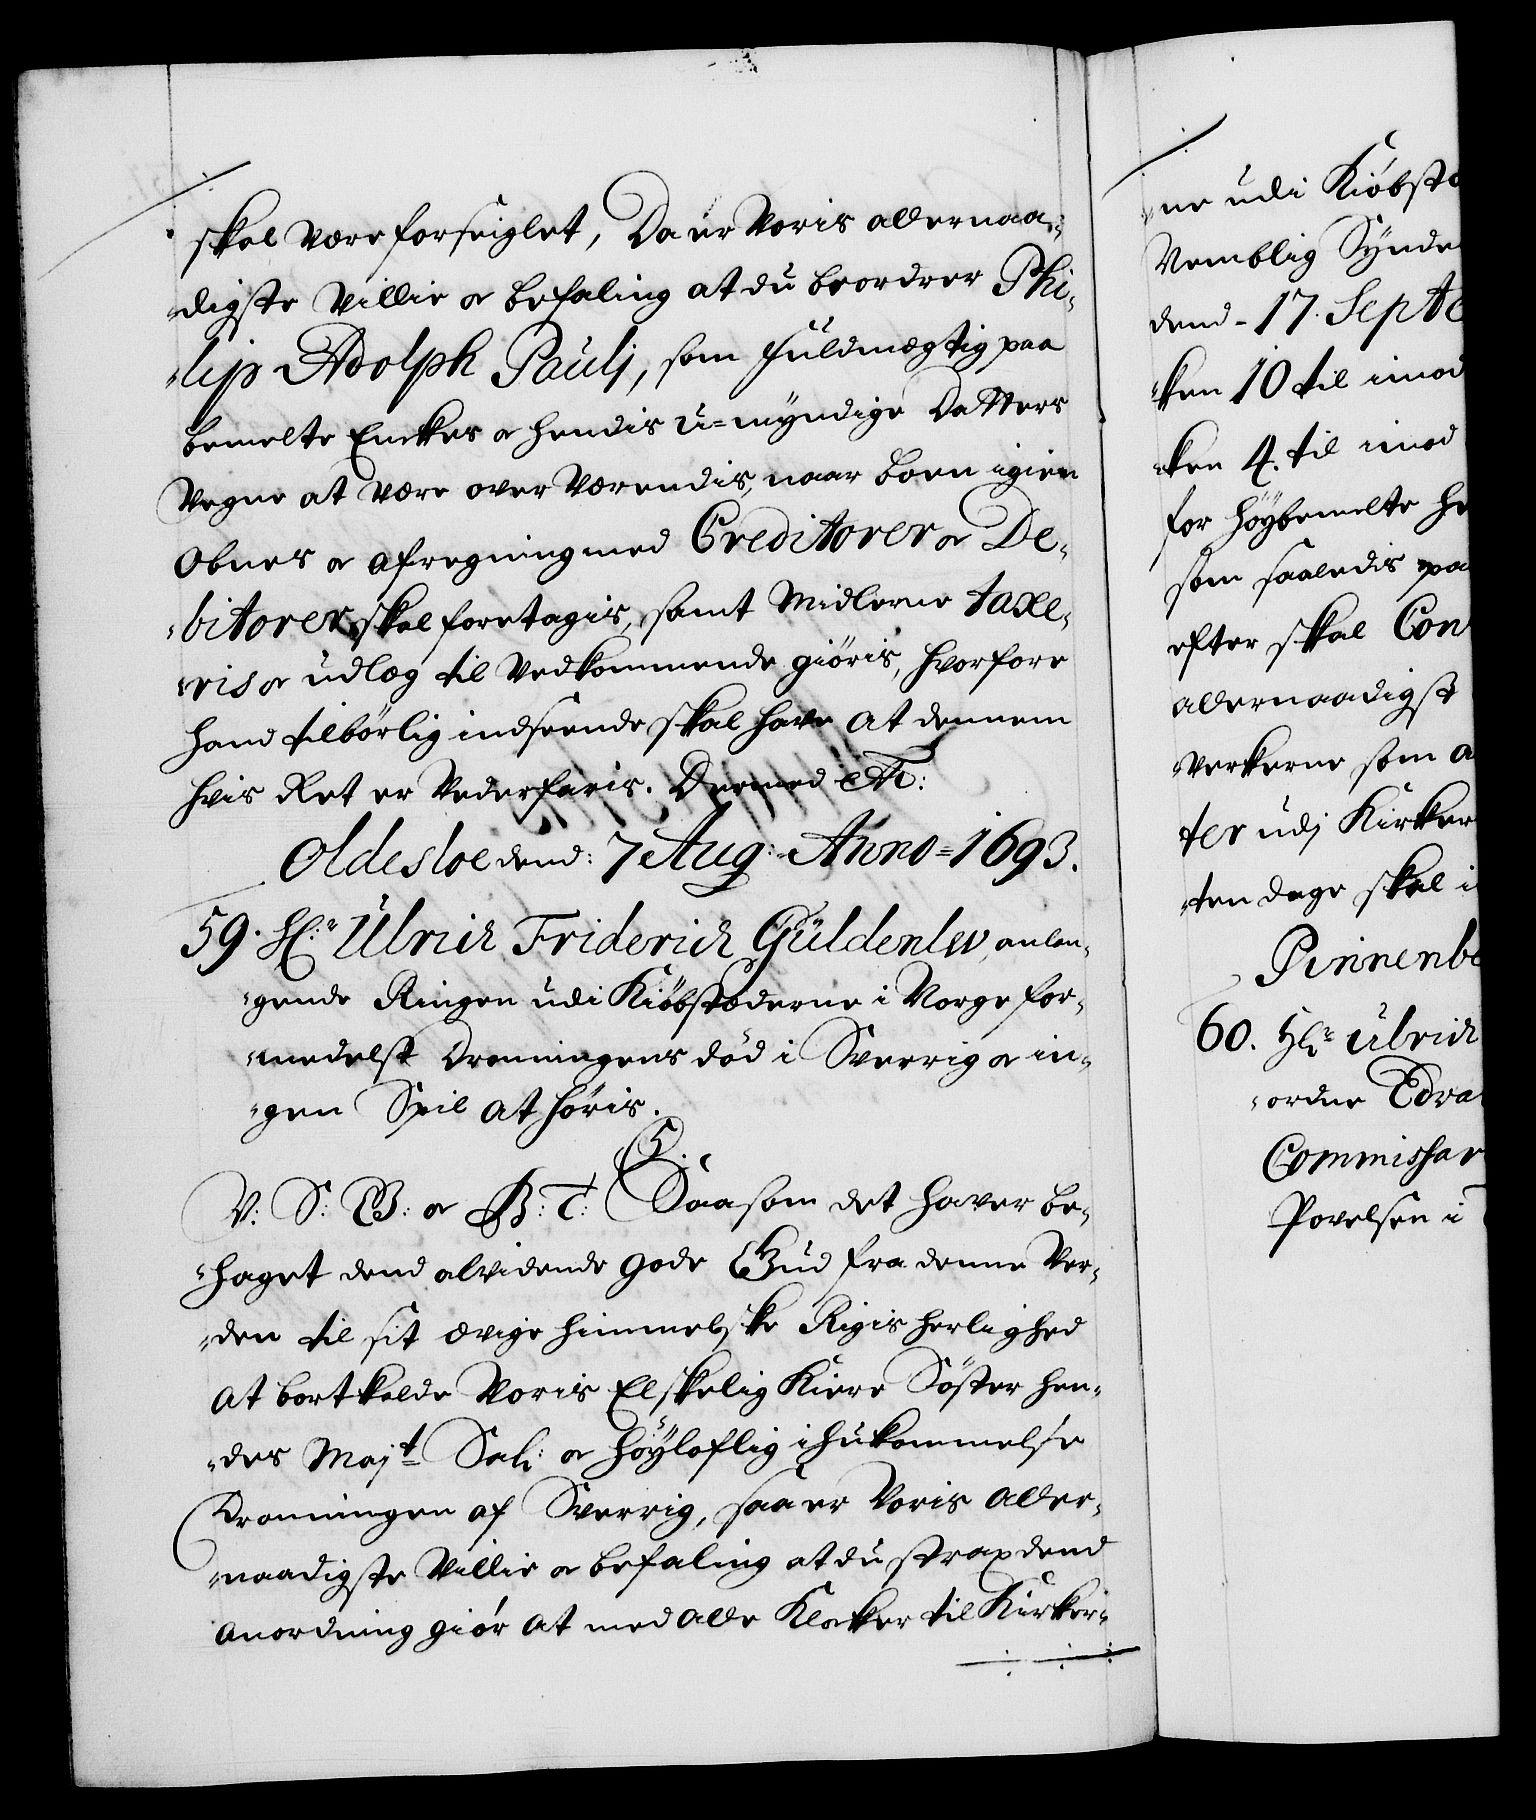 skal være forseiglet, Da er Voris allernaa-
digste Villie oc befaling at du beordrer Phi-
lip Adolph Paulj, som fuldmægtig paa
bemelte Enckes oc hendis u-myndige Datters
Vegne at være over Værendis, naar boen igien
obnes oc afregning med Creditorer oc De-
bitorer skal foretagis, samt Midlerne taxe-
ris oc udlæg til Vedkommende giøris, hvorfore
hand tilbørlig indseende skal have at dennem
hvis Ret er Vederfaris. Dermed etc:
Oldesloe dend: 7 Aug: Anno 1693.
59. Hr: Ulrich Friderich Güldenlew, anlan-
gende Ringen udi Kiøbstæderne i Norge for-
medelst Dronningens død i Sverrig oc in-
gen Spil at høris.
C5.
V: S: G: oc B: T: Saasom det haver be-
haget dend alvidende gode Gud fra denne Ver-
den til sit ævige himmelske Rigis herlighed
at bortkalde Voris Elskelig Kiere Söster hen-
des Majt Sal: oc höyloflig ihukommelse
Dronningen af Sverrig, saa er Voris Aller-
naadigste Villie oc befaling at du strax dend
anordning giör at med alle Klocker til Kirker-
ne udi Kiöbstæ
Nemblig Synde
dend 17. Septe
ken 10 til imod
ken 4. til imod
for höybemelte H
som saaledis paa
efter skal Con
allernaadigst
verkerne som a
ter udj Kirker
ten dage skal i
Pinnenbe
60. Hr Ulrich
ordre Edva
Commissar
Povelsen i